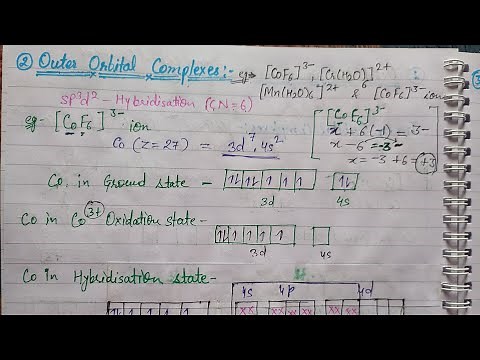 ② Outer Orbital Complexes:- eg→ [CoF6]3-, [Cr(H2O)6]2+
[Mn(H2O)6]2+ & [CoF6]3- ion
sp3d2 - Hybridisation (C,N=6)
eg- [CoF6]3- ion
Co (Z=27) = 3d7, 4s2
[CoF6]3-
x + 6(-1) = 3-
x - 6 = -3
x = -3 + 6 = +3
Co, in Ground state - ⥮ ⥮ 1 1 1 ⥮
3d 4s
Co in Co3+ Oxidation state - ⥮ 1 1 1 1
3d 4s
Co in Hybridisation state-
4s 4p 4d
⥮ 1 1 1 1 xx xx xx xx xx xx